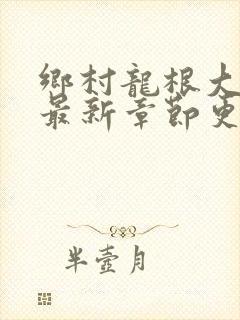 鄉村龍根大
最新章節更
半壺月